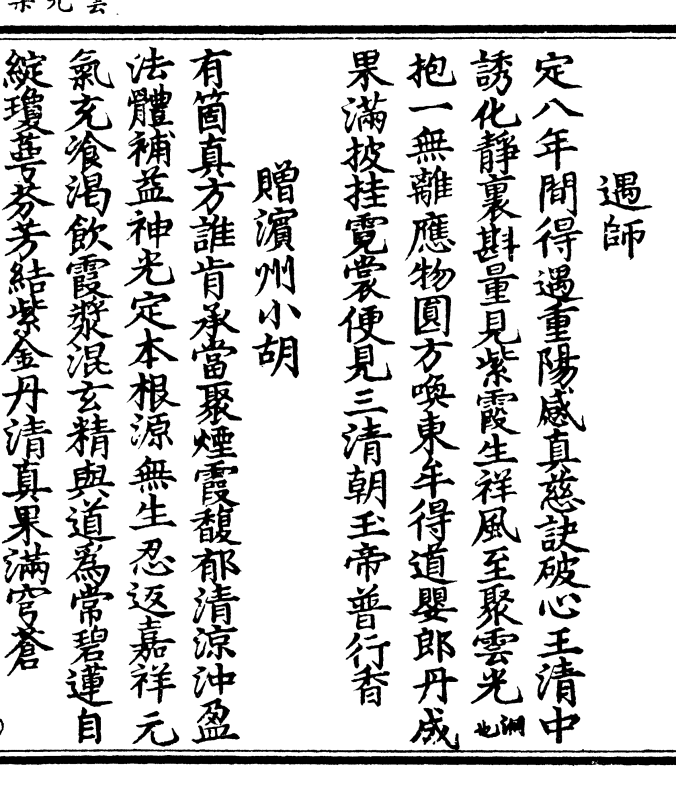 遇師
定八年間得遇重陽感真慈訣破心王清中
誘化靜裏斟量見紫霞生祥風至聚雲光洞也
抱一無離應物圓方喚東牟得道嬰郎丹成
果滿披挂霓裳便見三清朝玉帝普行香
贈濱州小胡
有箇真方誰肯承當聚煙霞馥郁清涼沖盈
法體補益神光定本根源無生忍返嘉祥元
氣充飡渴飲霞漿混玄精與道爲常碧蓮自
綻瓊萼芬芳結紫金丹清真果滿穹蒼